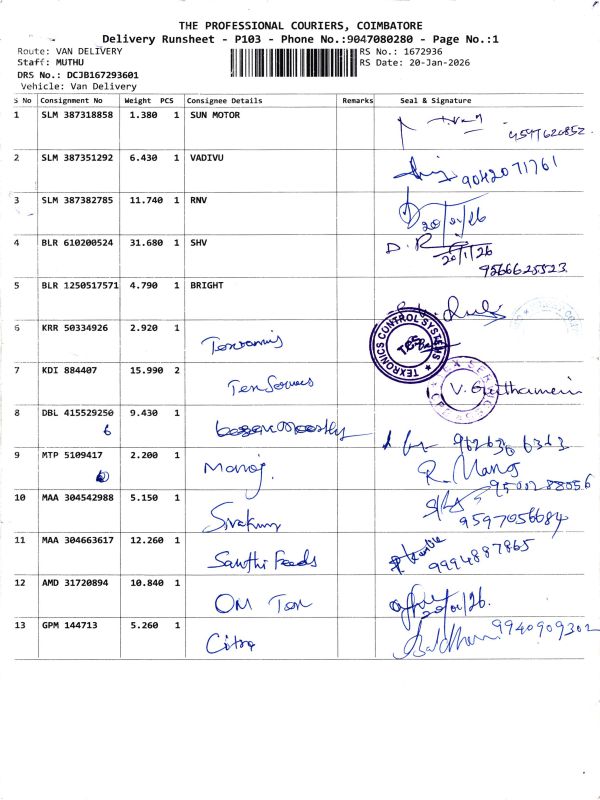 THE PROFESSIONAL COURIERS, COIMBATORE
Delivery Runsheet - P103 - Phone No.:9047080280 - Page No.:1
Route: VAN DELIVERY RS No.: 1672936
Staff: MUTHU RS Date: 20-Jan-2026
DRS No.: DCJB167293601
Vehicle: Van Delivery
S No Consignment No Weight PCS Consignee Details Remarks Seal & Signature
1 SLM 387318858 1.380 1 SUN MOTOR
2 SLM 387351292 6.430 1 VADIVU 9042071761
3 SLM 387382785 11.740 1 RNV 20/01/26
4 BLR 610200524 31.680 1 SHV D. R 20/1/26
9566625523
5 BLR 1250517571 4.790 1 BRIGHT
6 KRR 50334926 2.920 1 TEXRONICS CONTROL SYSTEMS
7 KDI 884407 15.990 2
8 DBL 415529250 9.430 1
6
9 MTP 5109417 2.200 1 Manoj R. Manoj
9500288056
10 MAA 304542988 5.150 1 Sivakumar 9597056684
11 MAA 304663617 12.260 1 Santhi Feeds 9994887865
12 AMD 31720894 10.840 1 OM Tex 20/01/26.
13 GPM 144713 5.260 1 Citra 9940909302